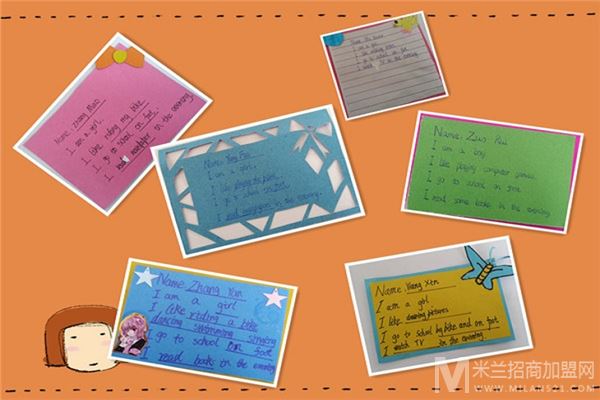 I am a girl.
I like riding my bike
I go to school on foot.
I read newspaper in the evening.
I am a girl.
I go to school on foot.
I watch TV in the evening.
I am a girl.
I go to school on foot.
I read newspapers in the evening.
I am a boy
I like playing computer games.
I go to school on foot
I read some books in the evening
Name: Zhang Yun
I am a girl
I like riding a bike
dancing swimming singing
I go to school on foot
I read books in the evening
Name: Xiang Xin
I am a girl
I like drawing pictures
I go to school by bike and on foot.
I watch TV in the evening
米兰招商加盟网
WWW.MILANS21.COM